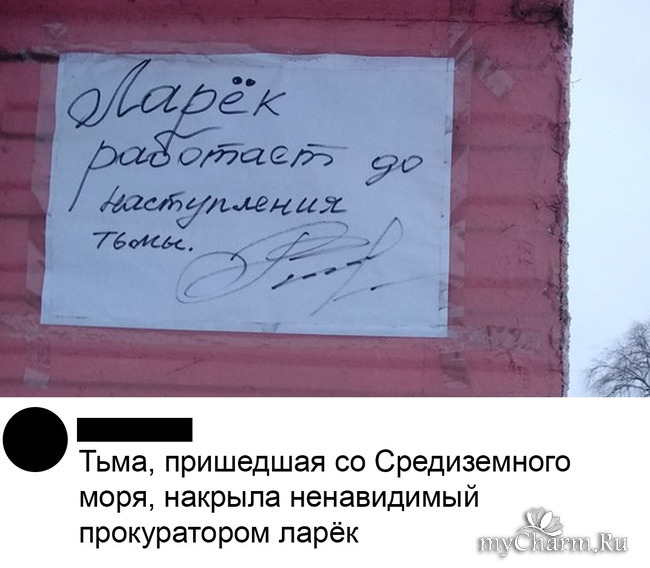 Ларёк
работает до
наступления
тьмы.
Тьма, пришедшая со Средиземного
моря, накрыла ненавидимый
прокуратором ларёк
myCharm.Ru